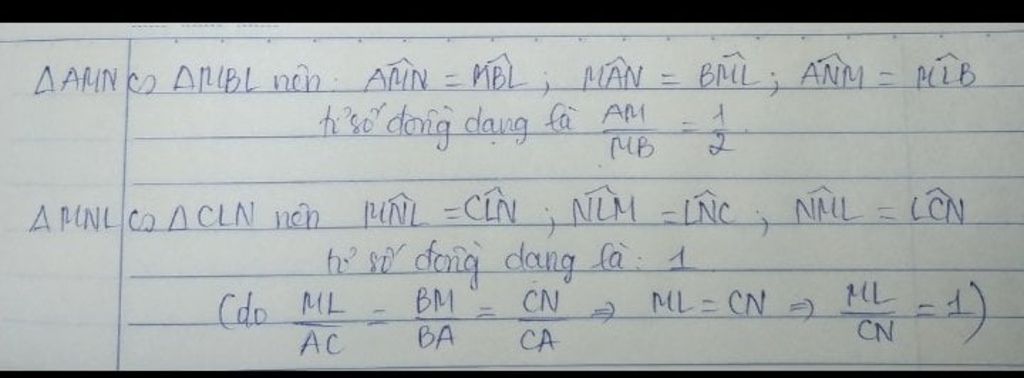 ΔAMN ∽ ΔMBL nên: AM̂N = MB̂L ; MÂN = BM̂L ; AN̂M = ML̂B
tỉ số đồng dạng là AM/MB = 1/2.
ΔMNL ∽ ΔCLN nên MN̂L = CL̂N ; NL̂M = LN̂C ; NM̂L = LĈN
tỉ số đồng dạng là: 1
(do ML/AC = BM/BA = CN/CA ⇒ ML = CN ⇒ ML/CN = 1)